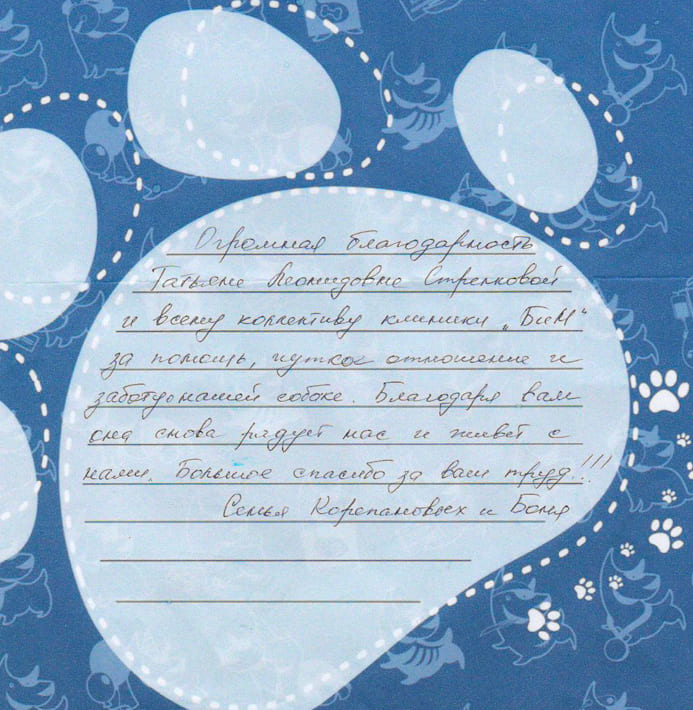 Огромная благодарность
Татьяне Леонидовне Стрелковой
и всему коллективу клиники „БиМ“
за помощь, чуткое отношение и
заботу о нашей собаке. Благодаря вам
она снова радует нас и живёт с
нами. Большое спасибо за ваш труд!!!
Семья Корепановых и Боня